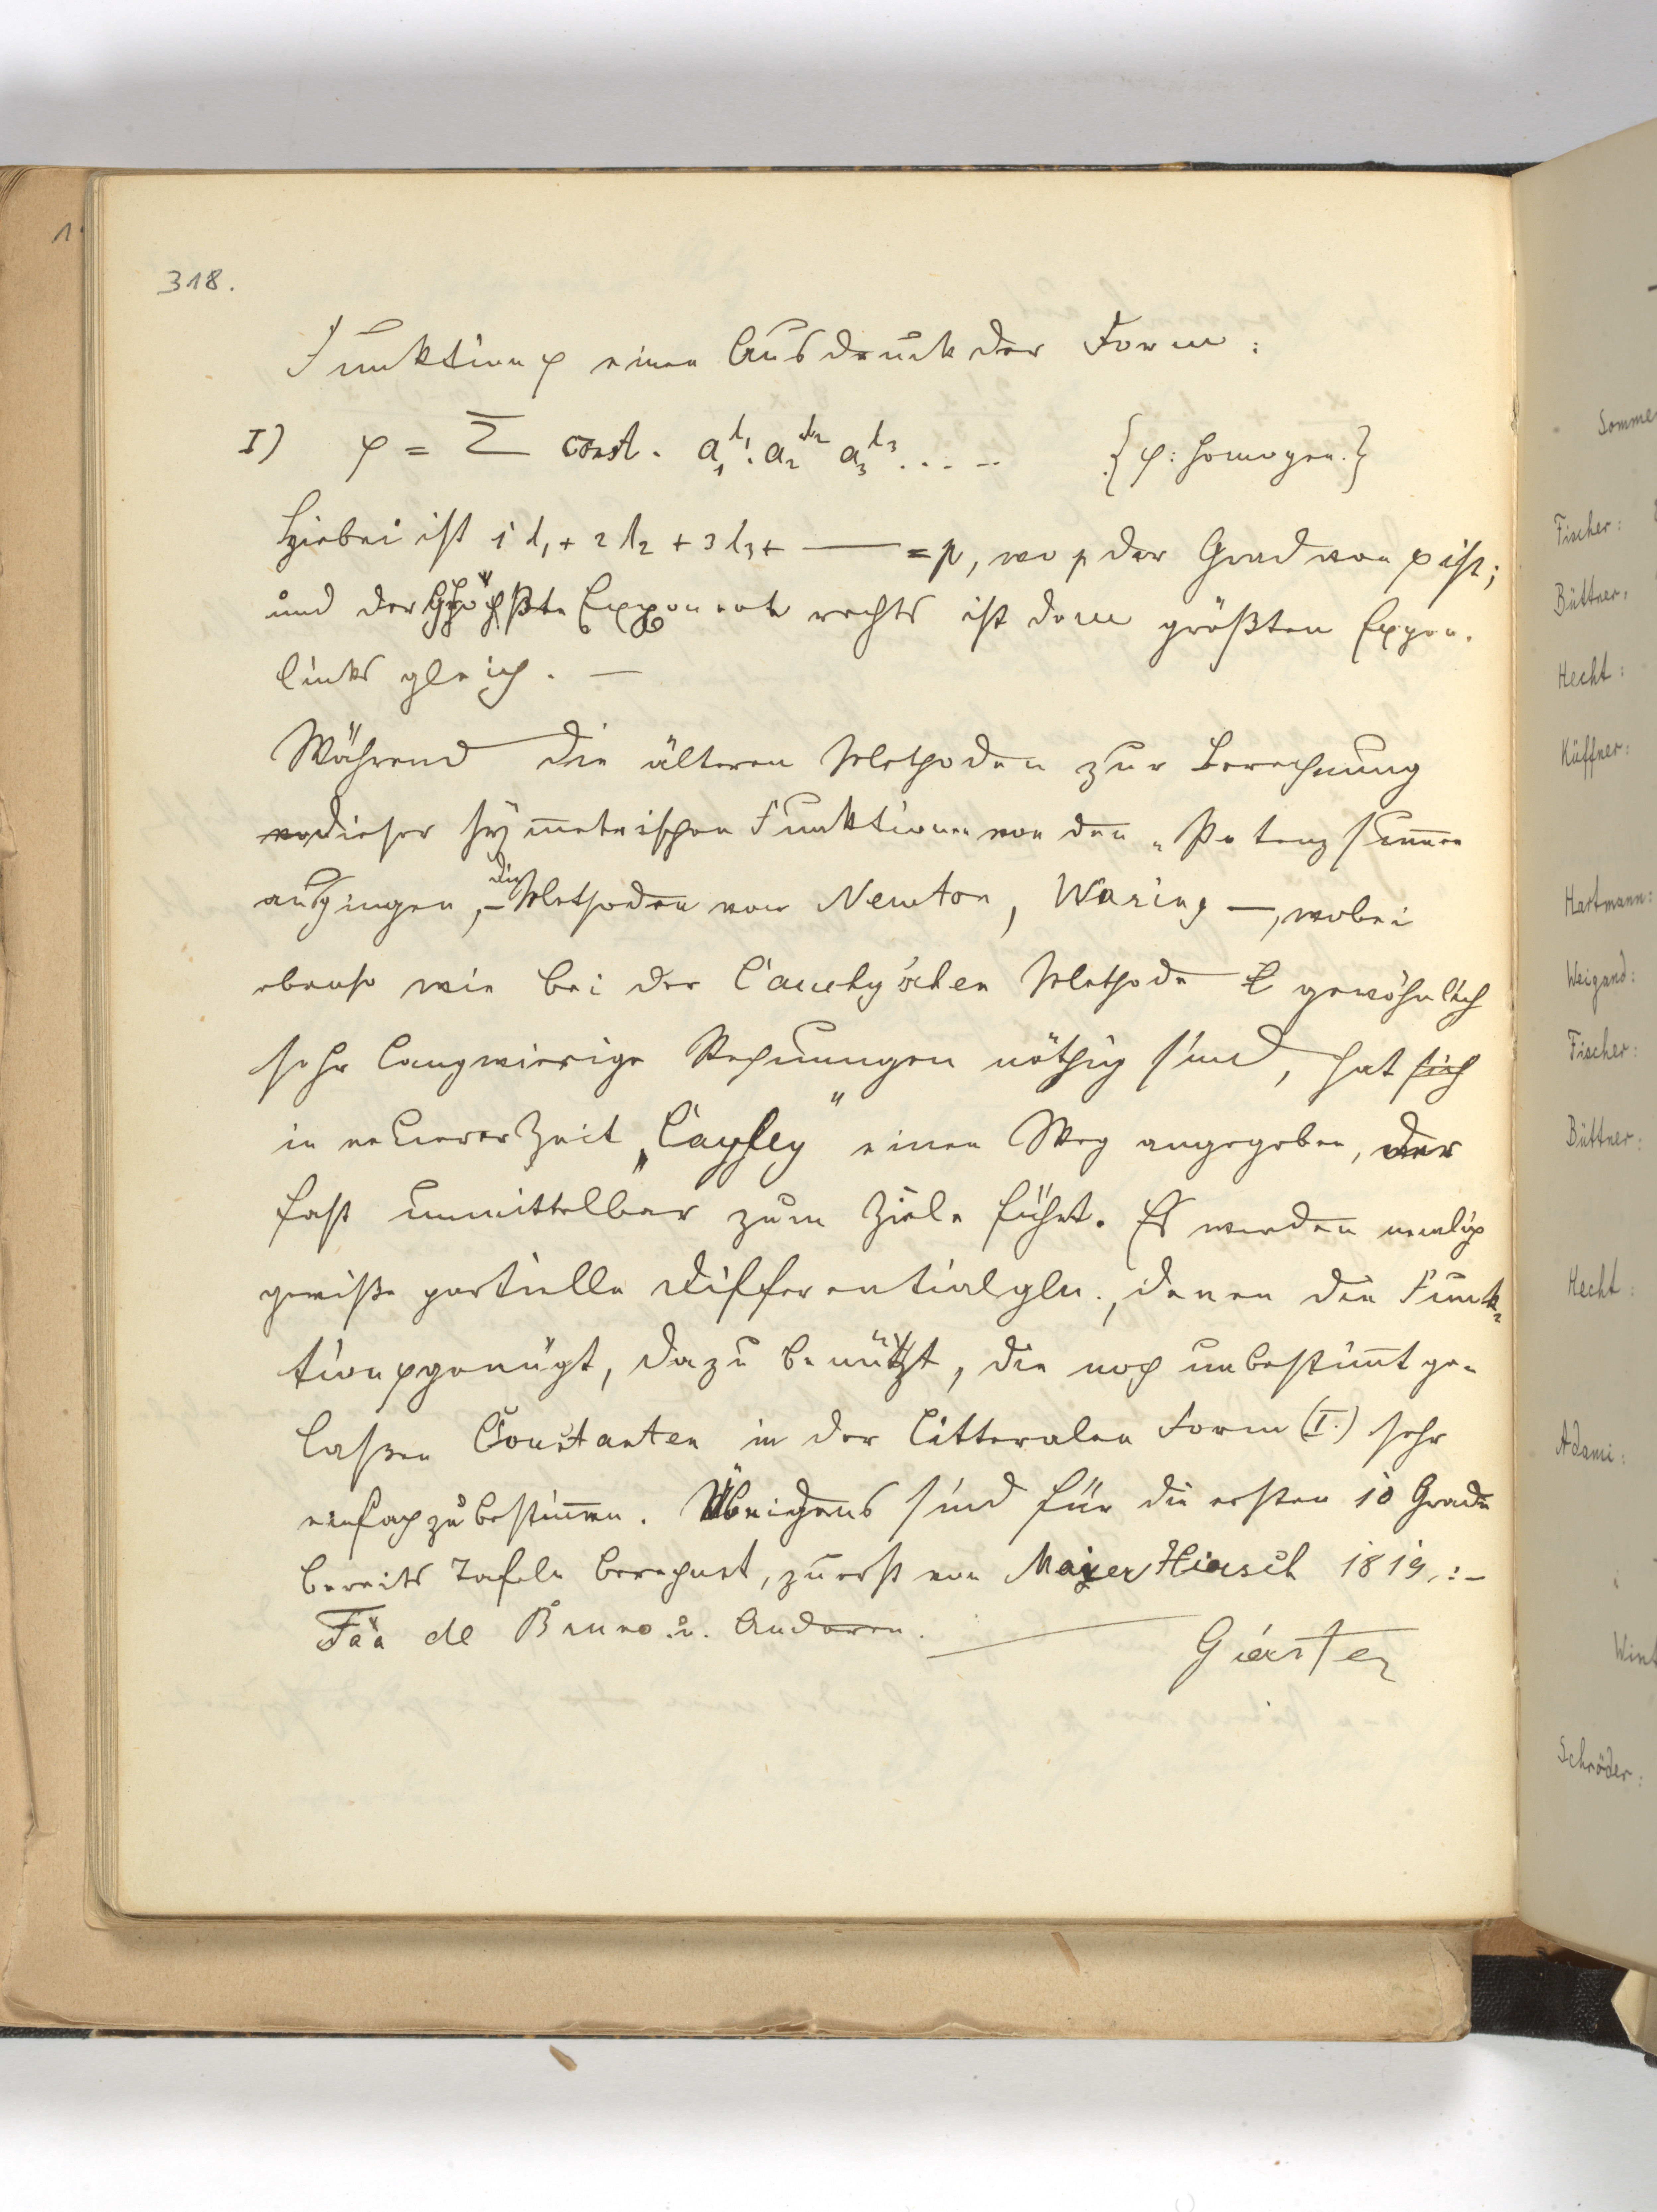 318.
Funktion φ einen Ausdruck der Form:
I) φ = Σ const. a₁^{λ₁}. a₂^{λ₂} a₃^{λ₃} ..... {φ: homogen.}
Hiebei ist 1 λ₁ + 2 λ₂ + 3 λ₃ + — = p, wo p der Grad von φ ist;
und der höchste Exponent rechts ist dem größten Expon.
links gleich. —
Während die älteren Methoden zur Berechnung
dieser sym̅etrischen Funktionen von den „Potenzsum̅en
ausgingen, – die Methoden von Newton, Waring —, wobei
ebenso wie bei der Cauchy'schen Methode gewöhnlich
sehr langwierige Rechnungen nöthig sind, hat sich
in neuerer Zeit „Cayley" einen Weg angegeben, der
fast unmittelbar zum Ziele führt. Es werden nemlich
gewiße partielle Differentialgln., denen die Funk-
tion φ genügt, dazu benützt, die noch unbestim̅t ge-
laßen Constanten in der litteralen Form (I.) sehr
einfach zu bestim̅en. Übrigens sind für die ersten 10 Grade
bereits Tafeln berechnet, zuerst von Majer Hirsch 1819, :-
Faà de Bruno u. Anderen. —
Gierster
1
Somme
Fischer:
Büttner:
Hecht:
Küffner:
Hartmann:
Weigand:
Fischer:
Büttner:
Hecht:
Adami:
Wint
Schröder: